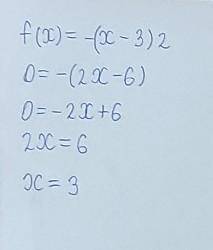 f(x) = -(x - 3) 2
0 = -(2x - 6)
0 = -2x + 6
2x = 6
x = 3